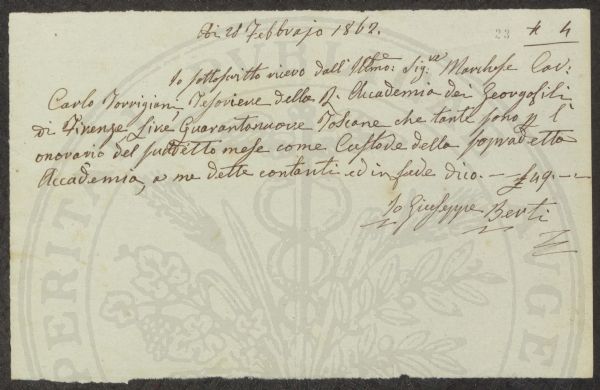 Di 28 Febbrajo 1862.
23
* 4
Io sottoscritto ricevo dall' Illmo: Sigre Marchese Cav:
Carlo Torrigiani, Tesoriere della R. Accademia dei Georgofili
di Firenze Lire Quarantanuove Toscane che tante sono p l'
onorario del suddetto mese come Custode della sopradetta
Accademia, a me dette contanti ed in fede dico. — £ 49. —
Io Giuseppe Berti
PERITA
NGE